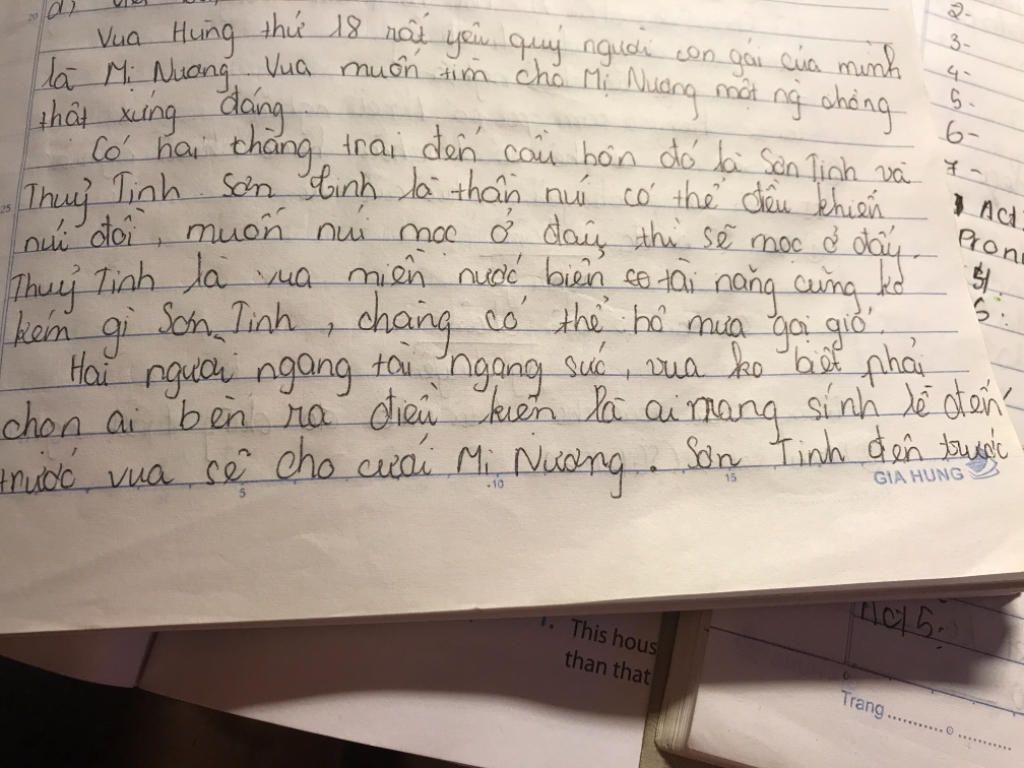 20 d)
Vua Hùng thứ 18 rất yêu quý người con gái của mình
là Mị Nương. Vua muốn tìm cho Mị Nương một ng chồng
thật xứng đáng
Có hai chàng trai đến cầu hôn đó là Sơn Tinh và
25 Thuỷ Tinh. Sơn tinh là thần núi có thể điều khiển
núi đồi, muốn núi mọc ở đâu thì sẽ mọc ở đấy.
Thuỷ Tinh là vua miền nước biển tài năng cũng ko
kém gì Sơn Tinh, chàng có thể hô mưa gọi gió.
Hai người ngang tài ngang sức, vua ko biết phải
chọn ai bèn ra điều kiện là ai mang sính lễ đến
trước vua sẽ cho cưới Mị Nương. Sơn Tinh đến trước
5 10 15 GIA HUNG
2-
3-
4-
5-
6-
7-
Act
Pron
This hous
than that
Act 5.
Trang